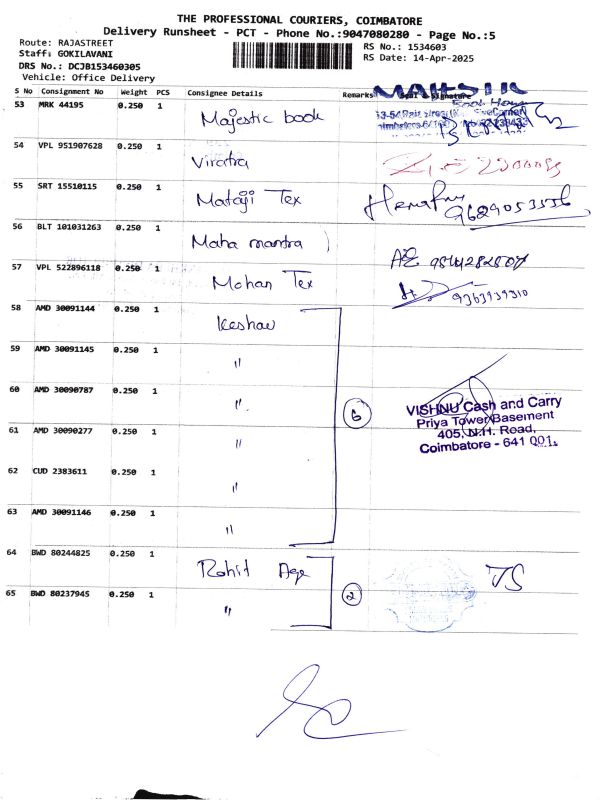 THE PROFESSIONAL COURIERS, COIMBATORE
Delivery Runsheet - PCT - Phone No.:9047080280 - Page No.:5
Route: RAJASTREET
Staff: GOKILAVANI
DRS No.: DCJB153460305
Vehicle: Office Delivery
RS No.: 1534603
RS Date: 14-Apr-2025
S No Consignment No Weight PCS Consignee Details Remarks Seal & Signature
53 MRK 44195 0.250 1 Majestic book
54 VPL 951907628 0.250 1 Viratra
55 SRT 15510115 0.250 1 Mataji Tex 9629053536
56 BLT 101031263 0.250 1 Maha mantra
57 VPL 522896118 0.250 1 Mohan Tex 9363939310
58 AMD 30091144 0.250 1 Keshav
59 AMD 30091145 0.250 1 "
60 AMD 30090787 0.250 1 "
6
VISHNU Cash and Carry
Priya Tower Basement
405, N.H. Road,
Coimbatore - 641 001.
61 AMD 30090277 0.250 1 "
62 CUD 2383611 0.250 1 "
63 AMD 30091146 0.250 1 "
64 BWD 80244825 0.250 1 Rohit Age
2
65 BWD 80237945 0.250 1 "